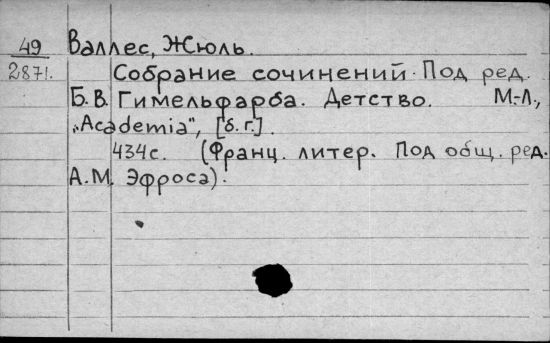 49 Валлес, Жюль.
2871. Собрание сочинений. Под ред.
Б.В. Гимельфарба. Детство. М.-Л.,
„Academia", [б.г.].
434с. (Франц. литер. Под общ. ред.
А.М. Эфроса).